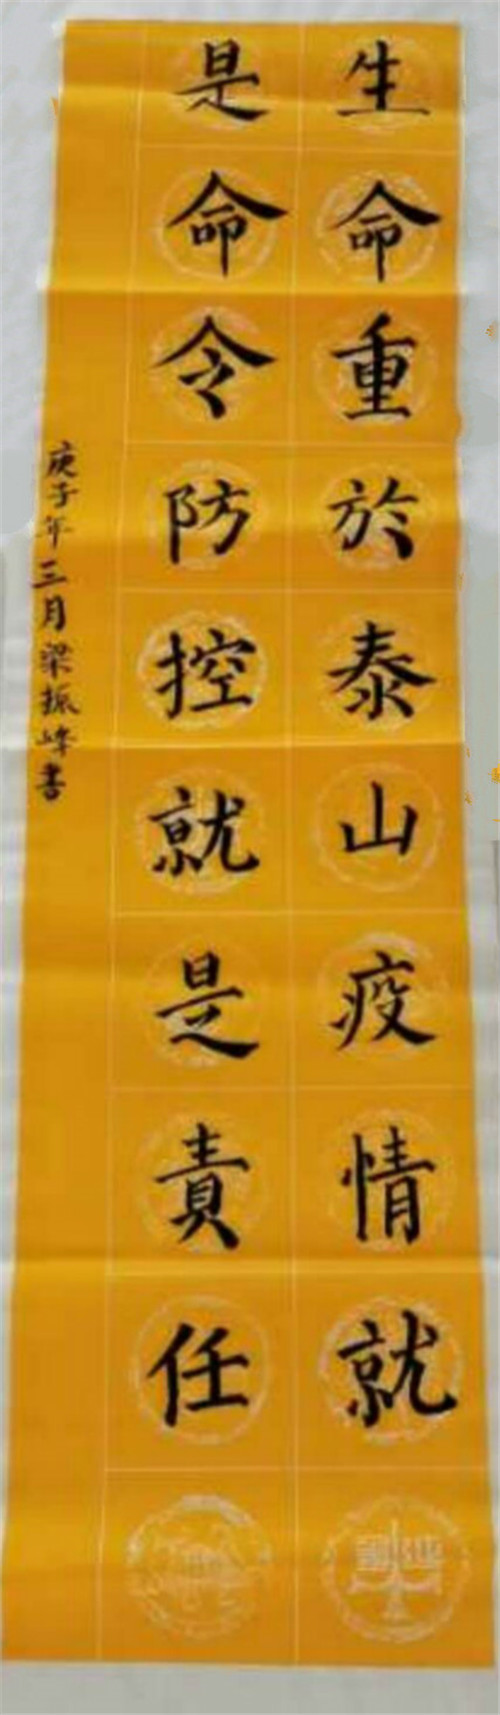 生命重於泰山疫情就
是命令防控就是責任
庚子年三月梁振峰書